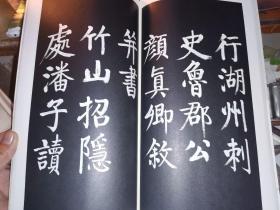 行湖州刺
史魯郡公
顔眞卿敘
并書
竹山招隱
處潘子讀